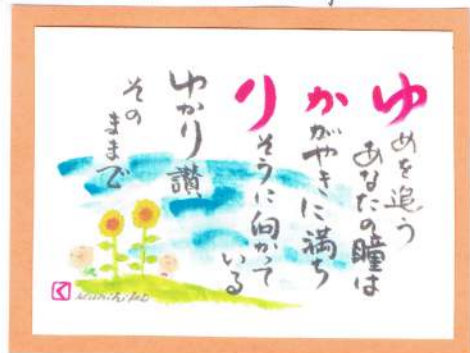 ゆめを追う
あなたの瞳は
かがやきに満ち
りそうに向かって
いる
ゆかり讃、
その
ままで
く Kunihiko